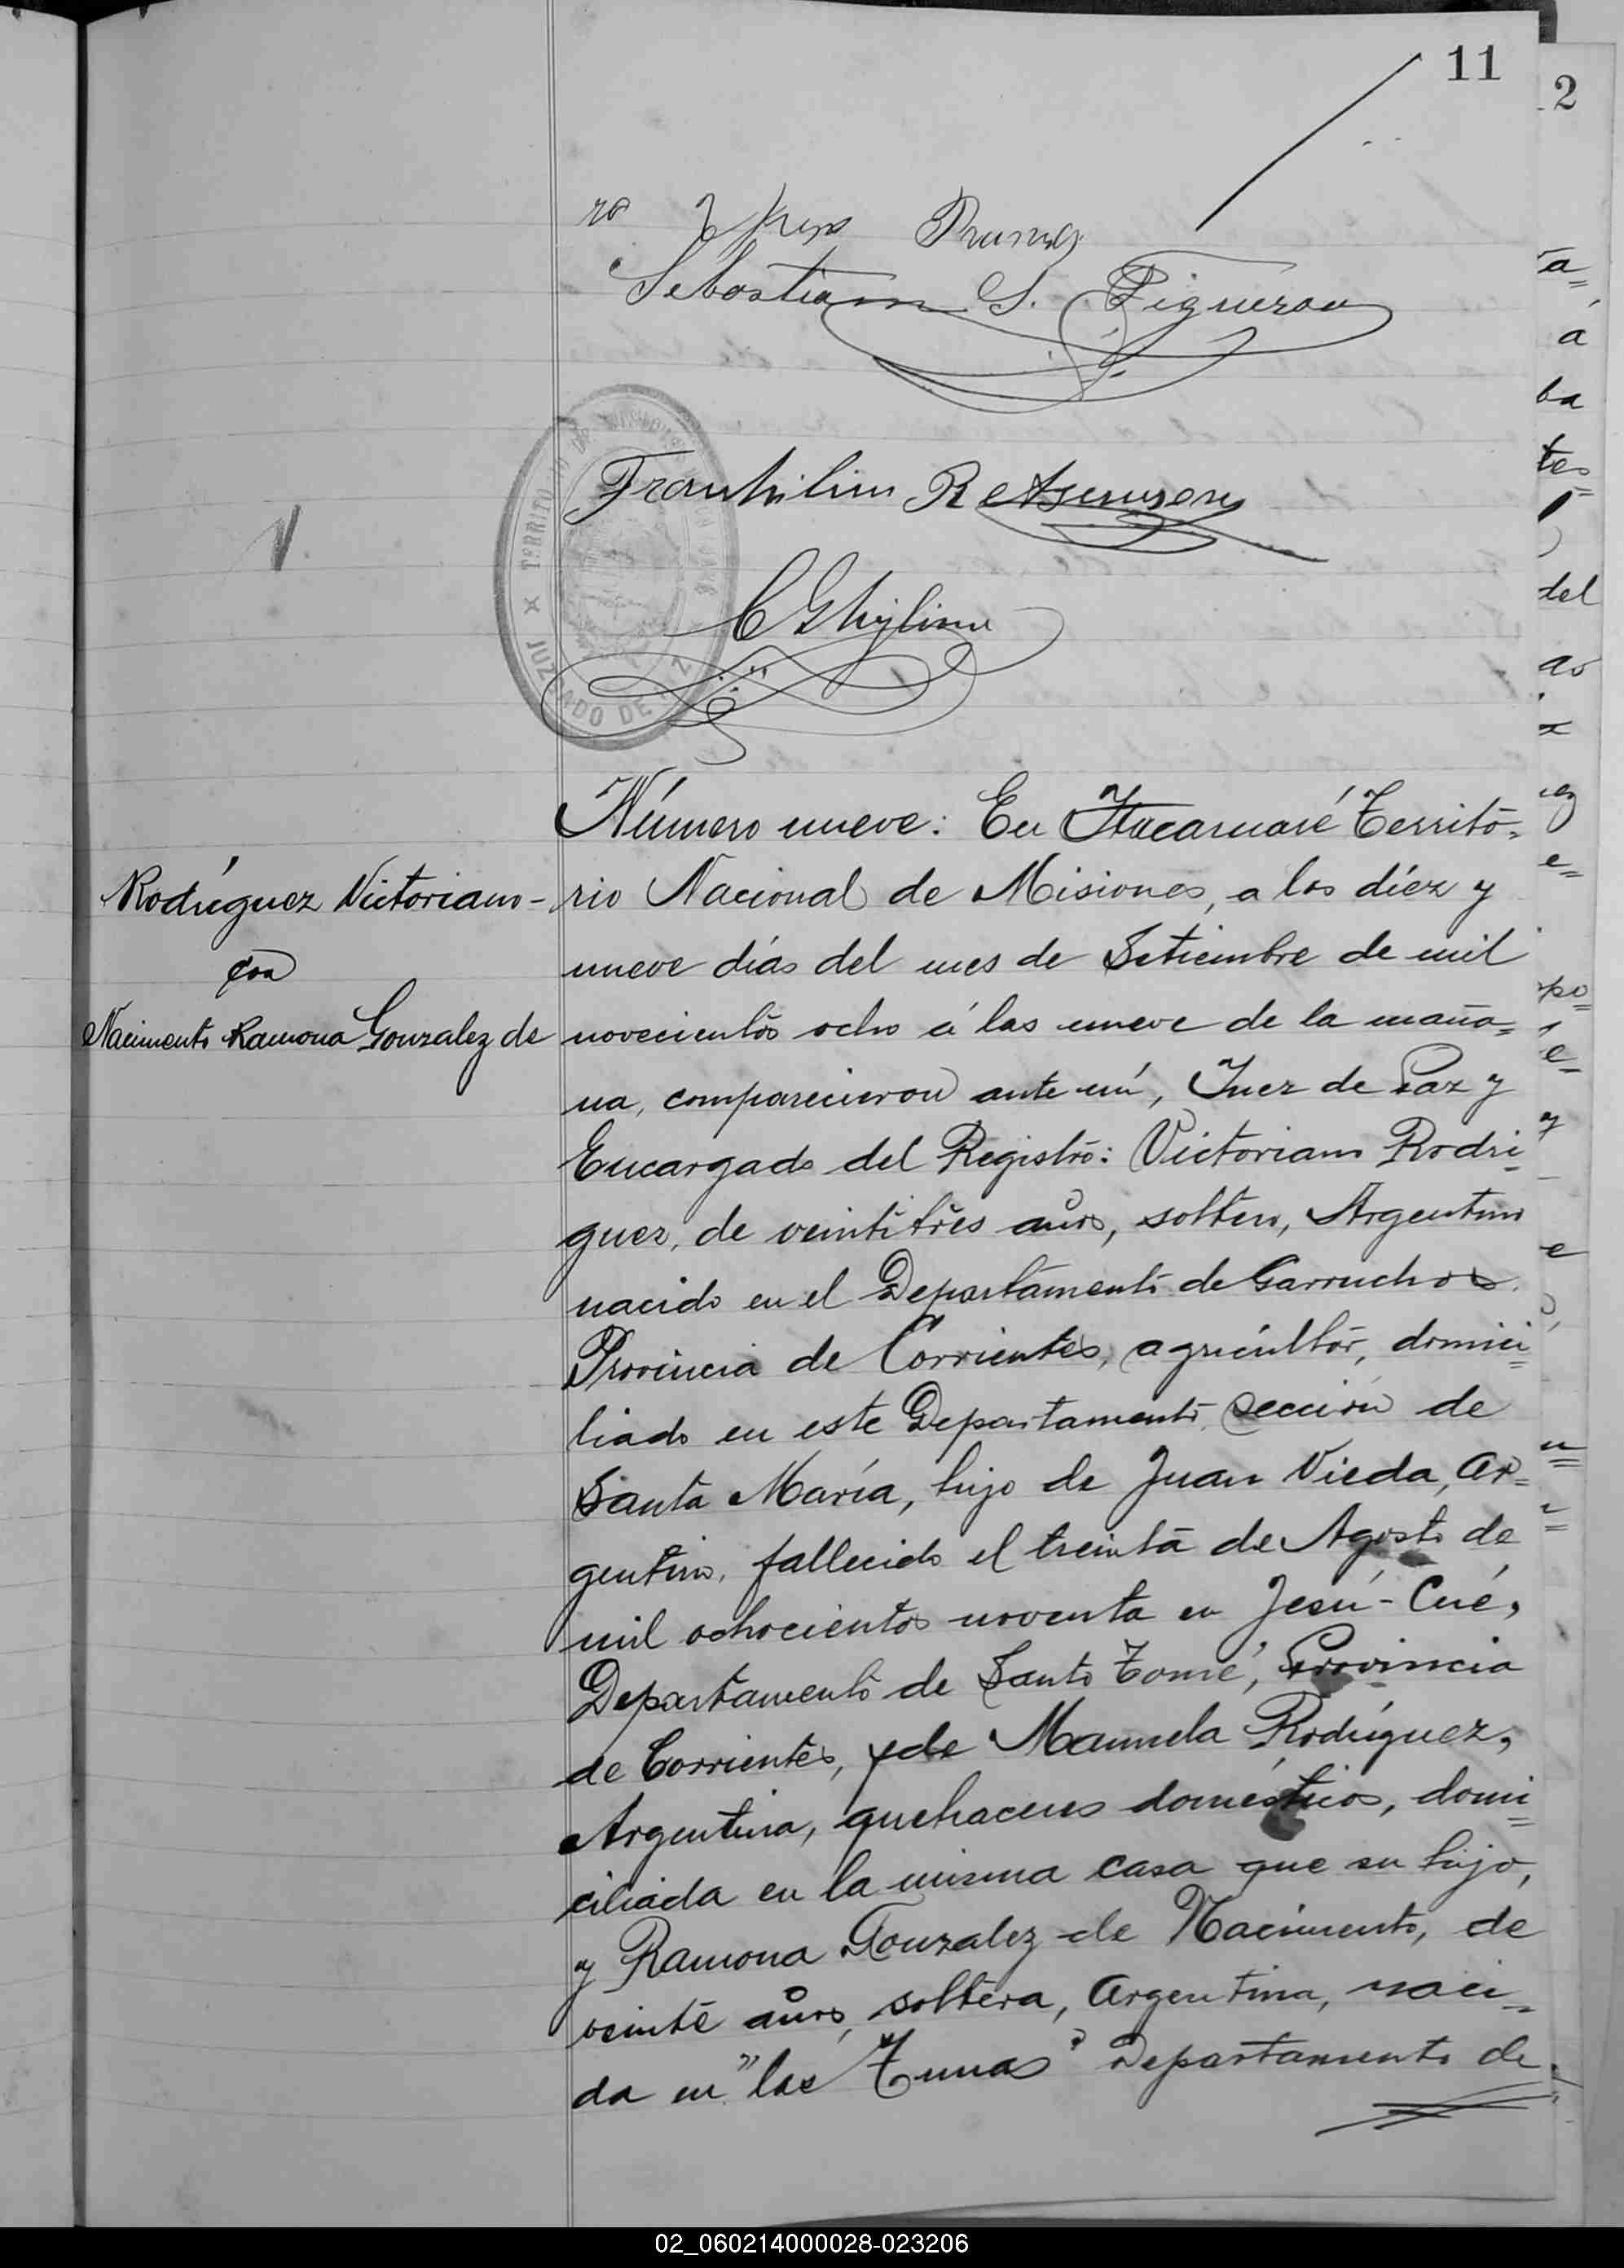 11
2
Sebastian S. Figueroa
TERRITORIO DE MISIONES
JUZGADO DE PAZ
Número nueve: En Itacaruaré Territo-
Rodríguez Victoriano - rio Nacional de Misiones, a los díez y
con
nueve días del mes de Setiembre de mil
Nacimento Ramona Gonzalez de
novecientos ocho á las nueve de la maña=
na, comparecieron ante mí, Juez de Paz y
Encargado del Registro: Victoriano Rodri-
guez, de veintitrés años, soltero, Argentino
nacido en el Departamento de Garruchos
Provincia de Corrientes, agricultor, domici=
liado en este Departamento sección de
Santa María, hijo de Juan Vieda, Ar=
gentino, fallecido el treinta de Agosto de
mil ochocientos noventa en Jesú-Cué,
Departamento de Santo Tomé, Provincia
de Corrientes, y de Manuela Rodríguez,
Argentina, quehaceres domésticos, domi=
ciliada en la misma casa que su hijo,
y Ramona Gonzalez de Nacimento, de
veinte años, soltera, Argentina, naci=
da en "las Tunas" Departamento de
02_060214000028-023206